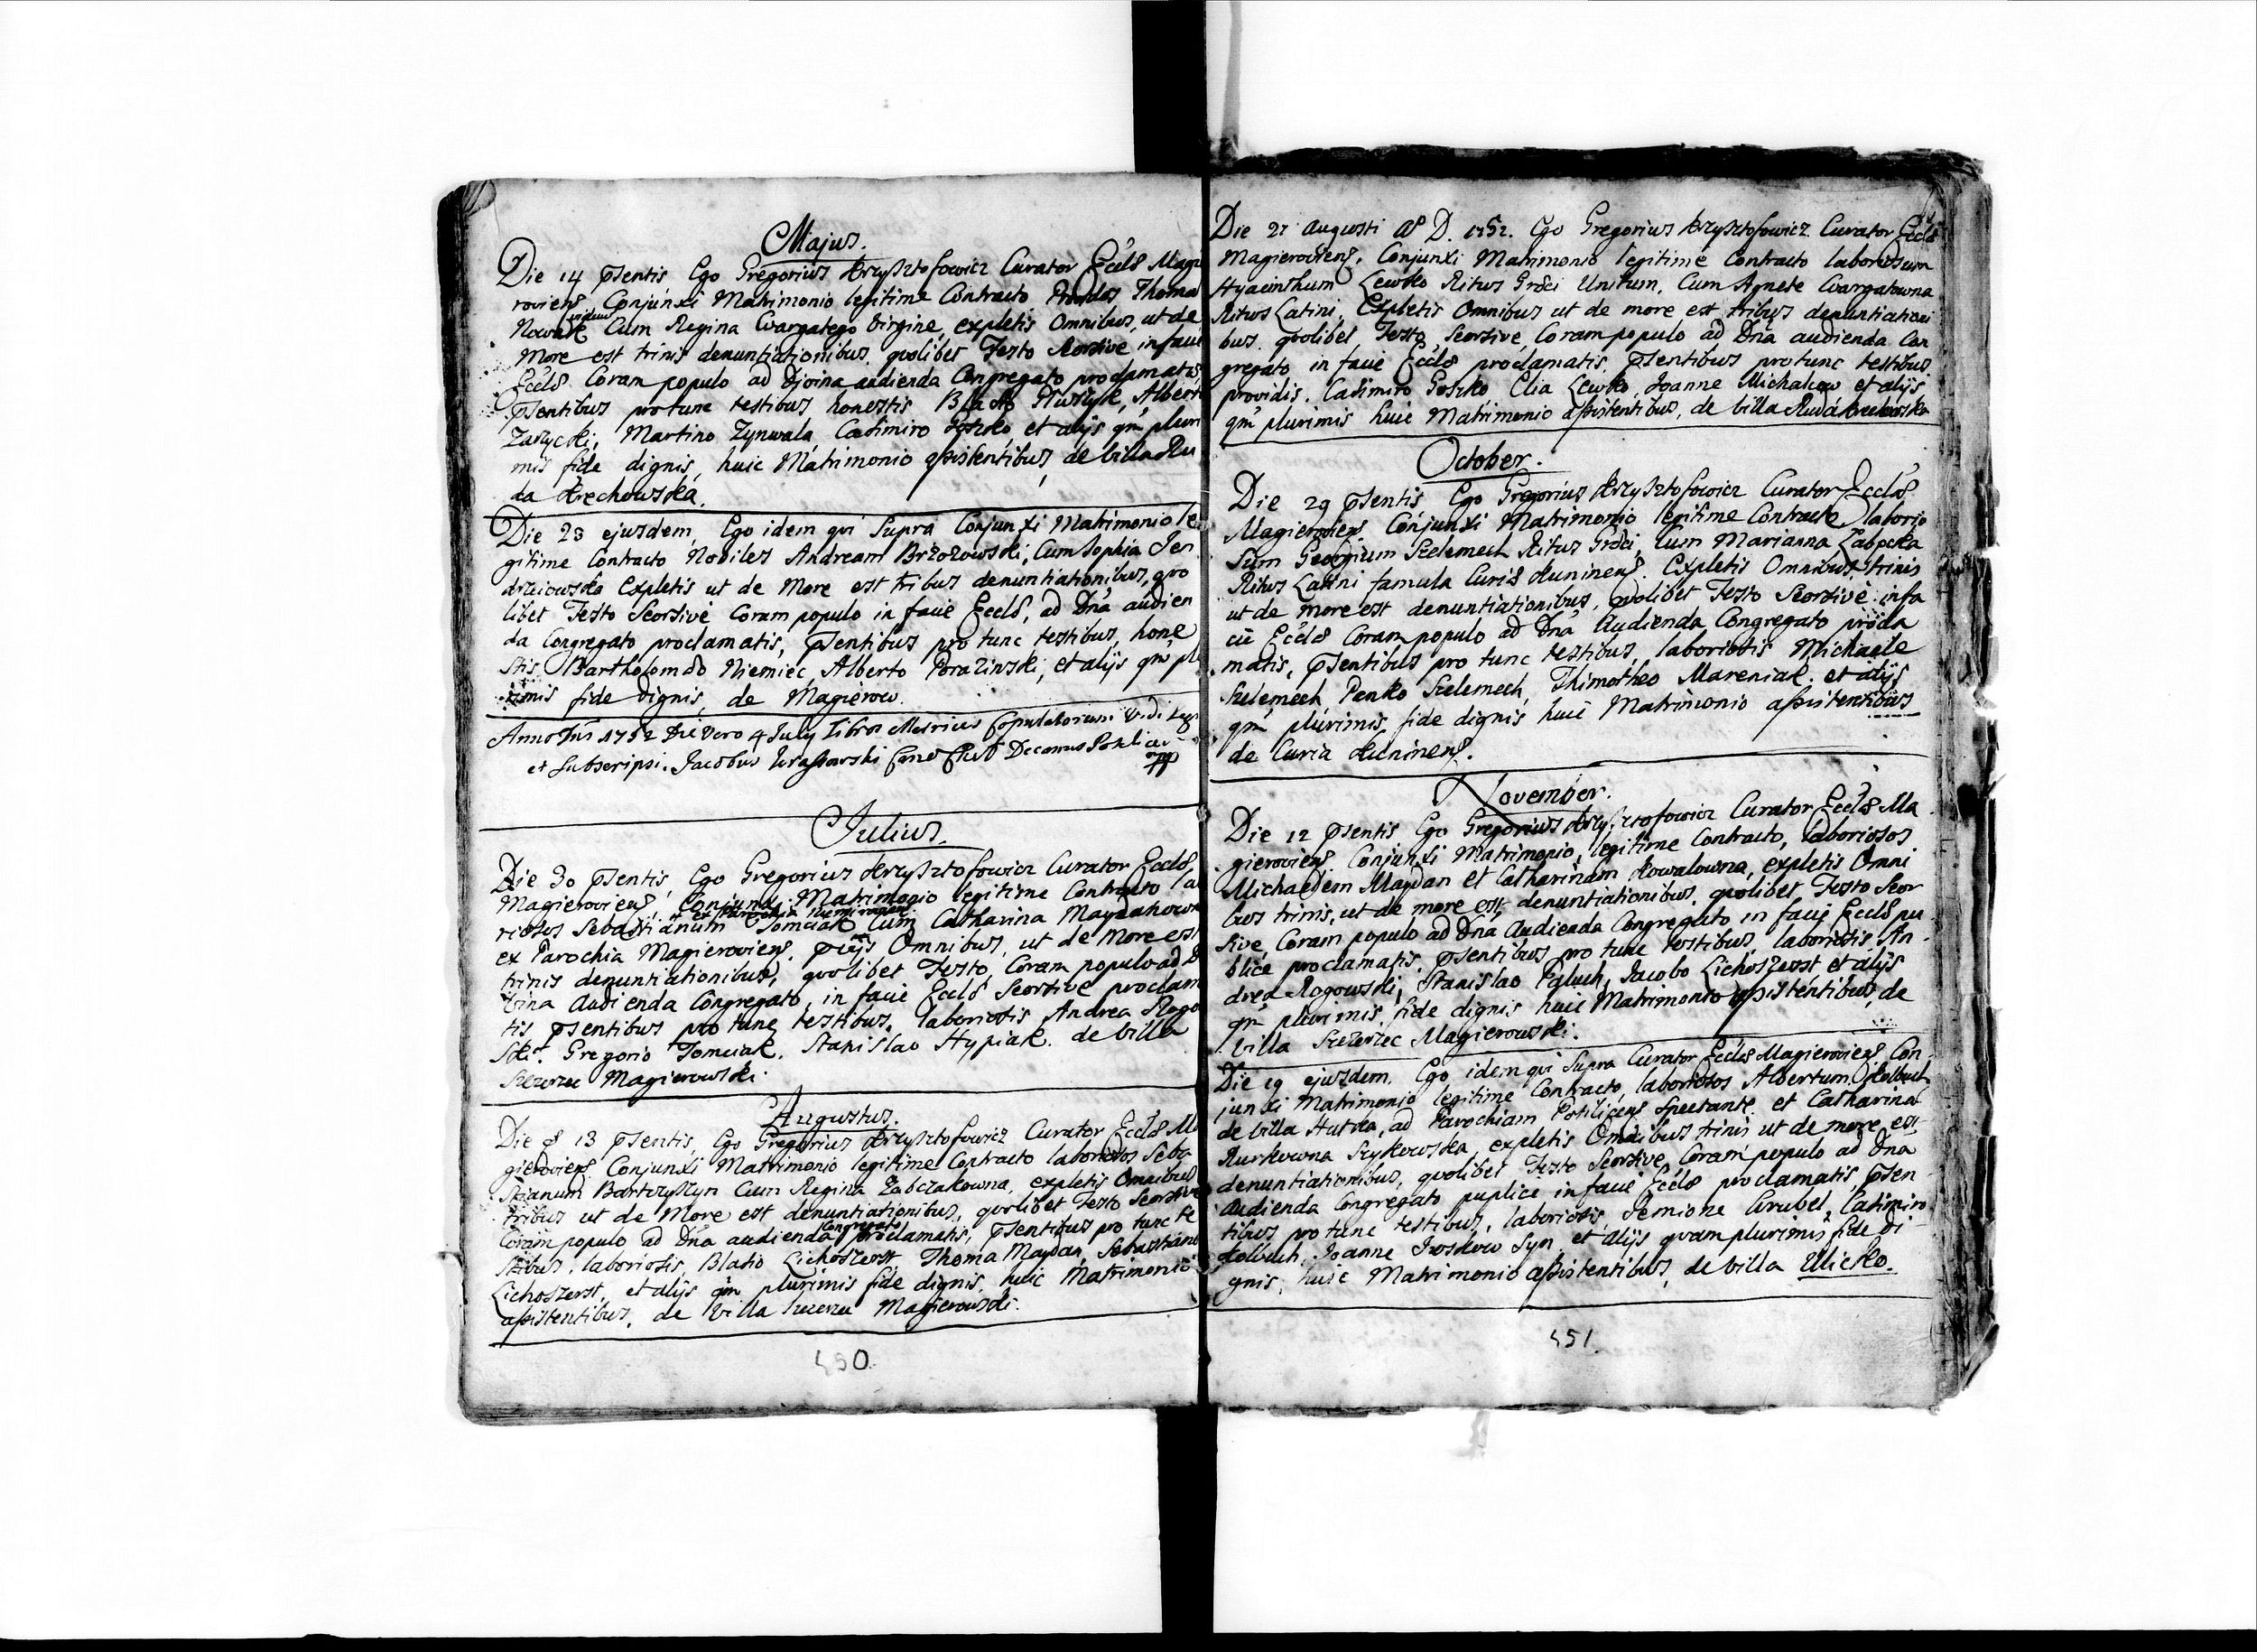 Majus.
Die 14 psentis Ego Gregorius Krzysztofowicz Curator Eccls Magie
roviens Conjunxi Matrimonio legitime Contracto Providos Thoma
viduum
Nowak Cum Regina Wargatego Virgine, expletis Omnibus, ut de
More est trinis denuntiationibus quolibet Festo Seorsive in facie
Eccls Coram populo ad Divina audienda Congregato proclamatis
psentibus pro tunc testibus honestis Alberto
Zarzycki, Martino Zynwala, Casimiro et alijs qm pluri
mis fide dignis, huic Matrimonio assistentibus, de villa Ru
da Krechowska.
Die 23 ejusdem, Ego idem qvi Supra Conjunxi Matrimonio le
gitime Contracto Nobiles Andream Brzozowski, Cum Sophia Jen
drzeiowska Expletis ut de More est tribus denuntiationibus, qvo
libet Festo Seorsive Coram populo in facie Eccls, ad Dna audien
da Congregato proclamatis, psentibus pro tunc testibus, hone
stis Bartholomæo Niemiec, Alberto Porazinski, et alijs qm plu
rimis fide dignis, de Magierow.
Anno Dni 1752 Die Vero 4 July Libros Metrices Copulatorum Vidi Legi
et Subscripsi. Jacobus Decanus Potilicen
mpp
Julius.
Die 30 psentis, Ego Gregorius Krzysztofowicz Curator Eccls,
Magieroviens, Conjunxi Matrimonio legitime Contracto la
ex Parochia Niemiroviens
riosos Sebastianum Tomciak Cum Catharina Maydanowna
ex Parochia Magieroviens. pvijs Omnibus, ut de More est
trinis denuntiationibus, quolibet Festo, Coram populo ad D
ivina Audienda Congregato, in facie Eccls Seorsive proclama
tis psentibus pro tunc testibus. laboriosis Andrea Rogo
ski. Gregorio Tomciak. Stanislao Hypiak. de villa
Szczerzec Magierowski.
Augustus.
Die 13 psentis, Ego Gregorius Krzysztofowicz Curator Eccls Ma
gieroviens Conjunxi Matrimonio legitime Contracto laboriosos Seba
stianum Bartczyszyn Cum Regina Zabczakowna, expletis Omnibus
tribus ut de More est denuntiationibus, quolibet Festo Seorsive
Congregato
Coram populo ad Dna audienda proclamatis, psentibus pro tunc te
stibus, laboriosis, Blasio Lichoszerst, Thoma Maydan, Sebastiano
Lichoszerst, et alijs qm plurimis fide dignis, huic Matrimonio
assistentibus, de Villa Szczerzec Magierowski.
450.
Die 27 Augusti A D. 1752. Ego Gregorius Krzysztofowicz Curator Eccls
Magieroviens, Conjunxi Matrimonio legitime Contracto laboriosum
Hyacinthum Lewko Ritus Græci Unitum, Cum Agnete Wargatowna
Ritus Latini, Expletis Omnibus ut de more est tribus denuntiatioi
bus quolibet Festo, Seorsive, Coram populo ad Dna audienda Con
gregato in facie Eccls proclamatis, psentibus pro tunc testibus
providis. Casimiro Elia Lewko, Joanne Michalow et alijs
qm plurimis huic Matrimonio assistentibus, de Villa Ruda Krechowska
October.
Die 29 psentis Ego Gregorius Krzysztofowicz Curator Eccls
Magieroviens Conjunxi Matrimonio legitime Contracto laborio
sum Georgium Szelemech Ritus Græci, Cum Marianna
Ritus Latini famula Curiæ Kuninens. Expletis Omnibus, trinis
ut de more est denuntiationibus, quolibet Festo Seorsive infa
cie Eccls Coram populo ad Dna Audienda Congregato procla
matis, psentibus pro tunc testibus, laboriosis Michaele
Szelemech Panko Szelemech, Thimotheo Mareniak et alijs
qm plurimis fide dignis huic Matrimonio assistentibus
de Curia Kuninens.
November.
Die 12 psentis Ego Gregorius Krzysztofowicz Curator Eccls Ma
gieroviens Conjunxi Matrimonio, legitime Contracto, laboriosos
Michaelem Maydan et Catharinam Kowalowna, expletis Omni
bus trinis, ut de more est denuntiationibus, quolibet Festo Seor
sive, Coram populo ad Dna Audienda Congregato in facie Eccls pu
blice proclamatis, psentibus pro tunc testibus, laboriosis, An
drea Rogowski, Stanislao Jacobo Lichoszerst et alijs
qm plurimis fide dignis huic Matrimonio assistentibus, de
villa Szczerzec Magierowski.
Die 19 ejusdem. Ego idem qvi Supra Curator Eccls Magieroviens Con
junxi Matrimonio legitime Contracto, laboriosos Albertum Kolbuch
de villa Hutka, ad Parochiam Potilicens Spectante et Catharina
Kurkowna Szykowska, expletis Omnibus trinis ut de more est
denuntiationibus, quolibet Festo Seorsive, Coram populo ad Dna
audienda Congregato puplice in facie Eccls proclamatis, psen
tibus pro tunc testibus, laboriosis, Semione Wrubel, Casimiro
Kolbuch, Joanne Iwskow Syn et alijs quam plurimis fide di
gnis, huic Matrimonio assistentibus, de villa Ulicko.
451.